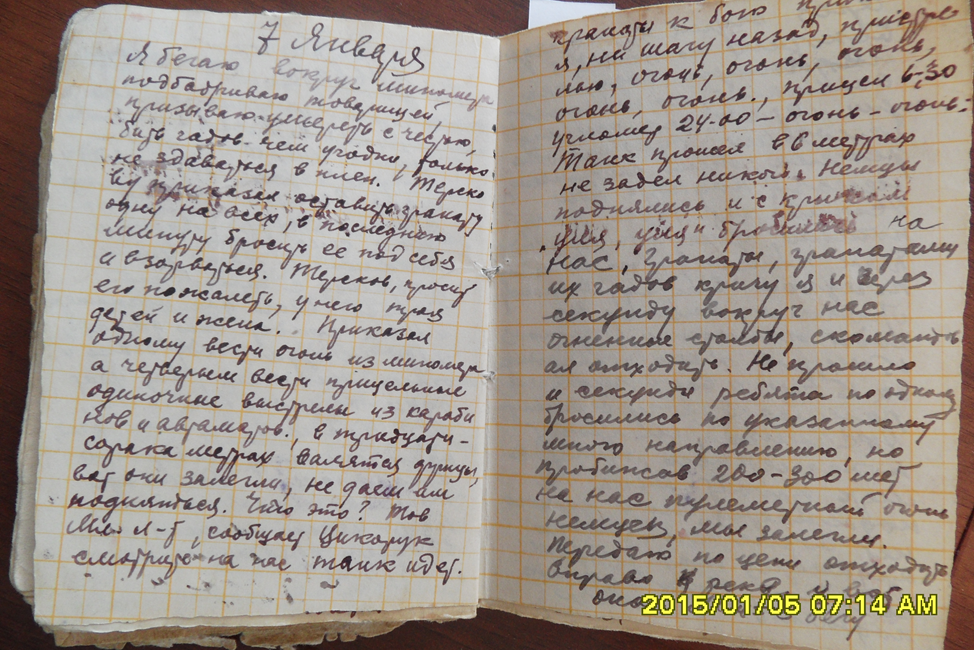 7 Января
Я бегаю вокруг миномета
подбадриваю товарищей,
призываю умереть с честью,
бить гадов чем угодно, только
не здаваться в плен. Терско
ву приказал оставить гранату
одну на всех, в последнюю
минуту бросить ее под себя
и взорваться. Терсков, просит
его пожалеть, у него трое
детей и жена. Приказал
одному вести огонь из миномета
а четверым вести прицельные
одиночные выстрелы из караби
нов и автаматов., в тридцати-
сорока метрах валятся фрицы,
вот они залегли, не даем им
подняться. Что это? тов
Мл. Л-т, сообщает Цикорук
смотрите на нас танк идет.
гранаты к бою
я, ни шагу назад, пристре
лю, огонь, огонь, огонь,
огонь, огонь., прицел 6-30
угломер 24-00 - огонь - огонь.
Танк прошел в 8 метрах
не задел никого. Немцы
поднялись и с криком
"уля, уля" бросились на
нас, гранаты, гранатами
их гадов кричу я и через
секунду вокруг нас
огненные столбы, скомандо
ал отходить. Не прошло
и секунды ребята по одному
бросились по указанному
мною направлению, но
пробижав 200-300 мет
на нас пулеметный огонь
немцев, мы залегли.
Передаю по цепи отходить
вправо к реке
2015/01/05 07:14 AM